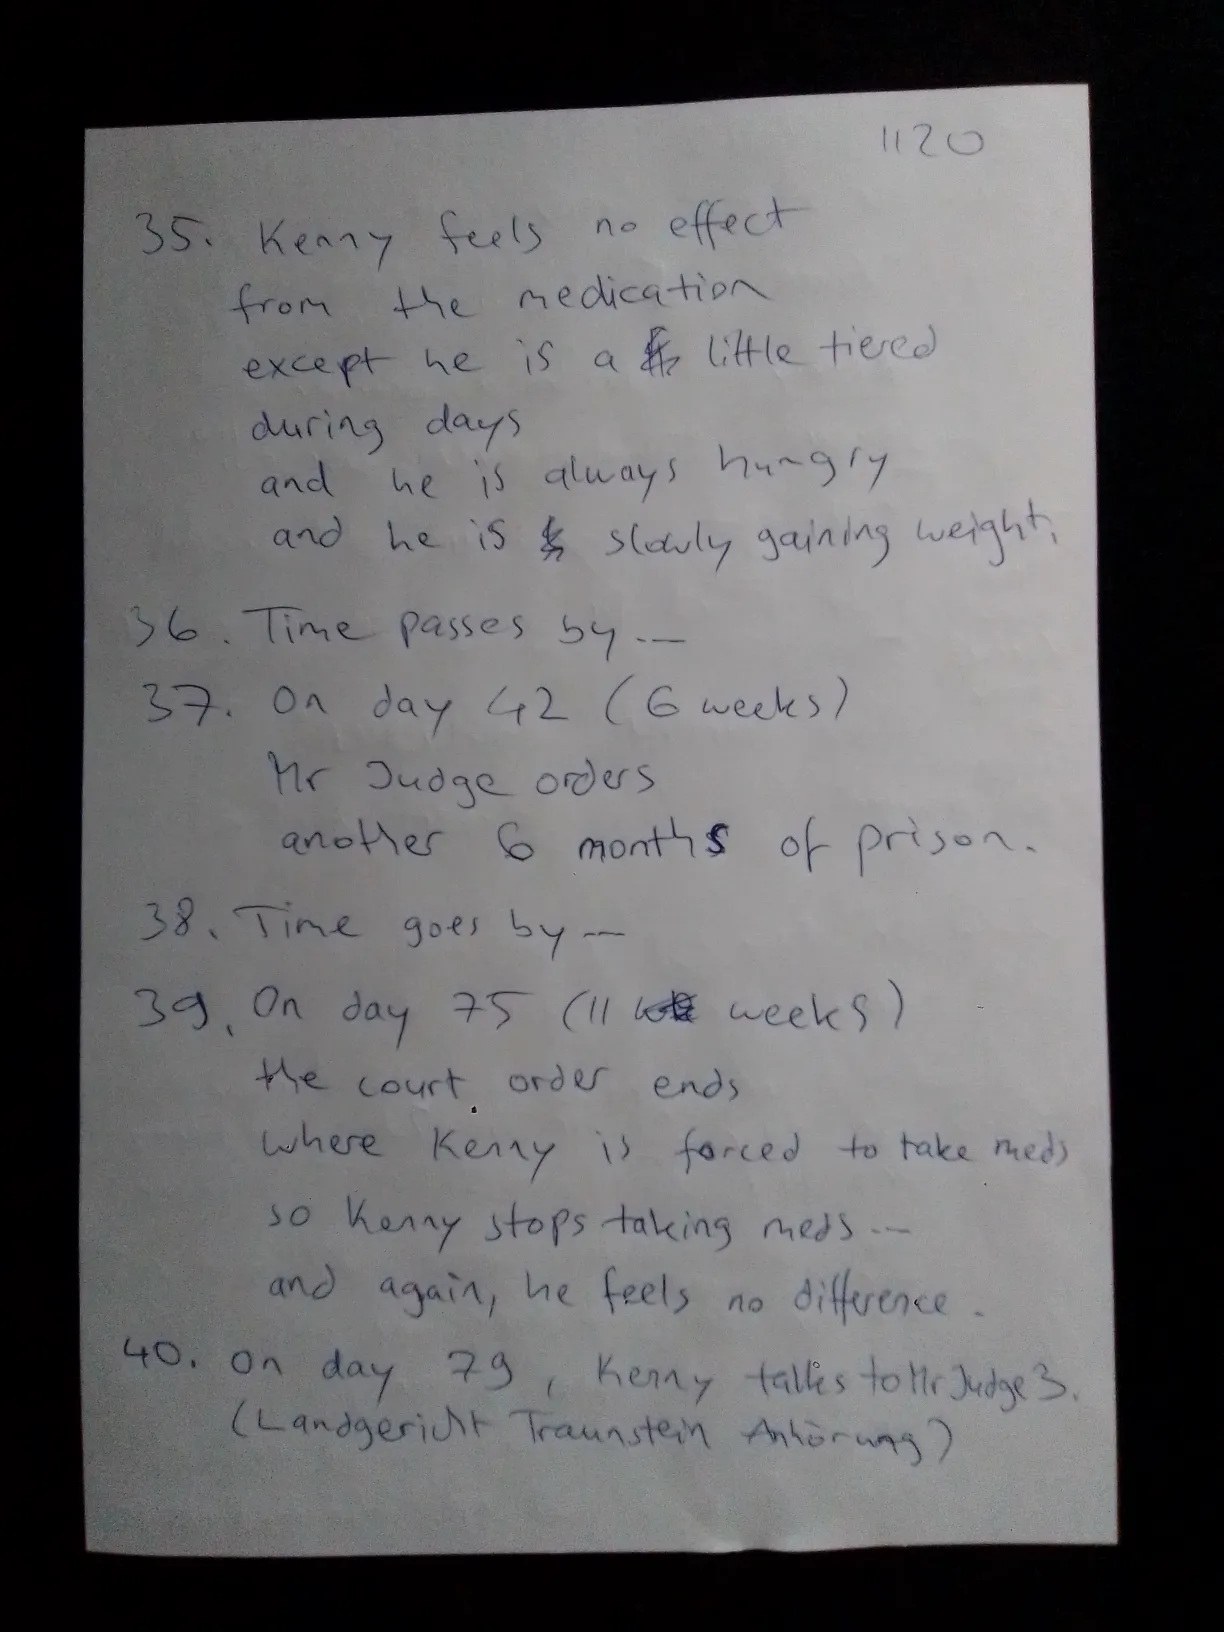 1120
35. Kenny feels no effect
from the medication
except he is a little tiered
during days
and he is always hungry
and he is slowly gaining weight.
36. Time passes by ...
37. On day 42 (6 weeks)
Mr Judge orders
another 6 months of prison.
38. Time goes by ...
39. On day 75 (11 weeks)
the court order ends
where Kenny is forced to take meds
so Kenny stops taking meds ...
and again, he feels no difference.
40. On day 79, Kenny talks to Mr Judge 3.
(Landgericht Traunstein Anhörung)